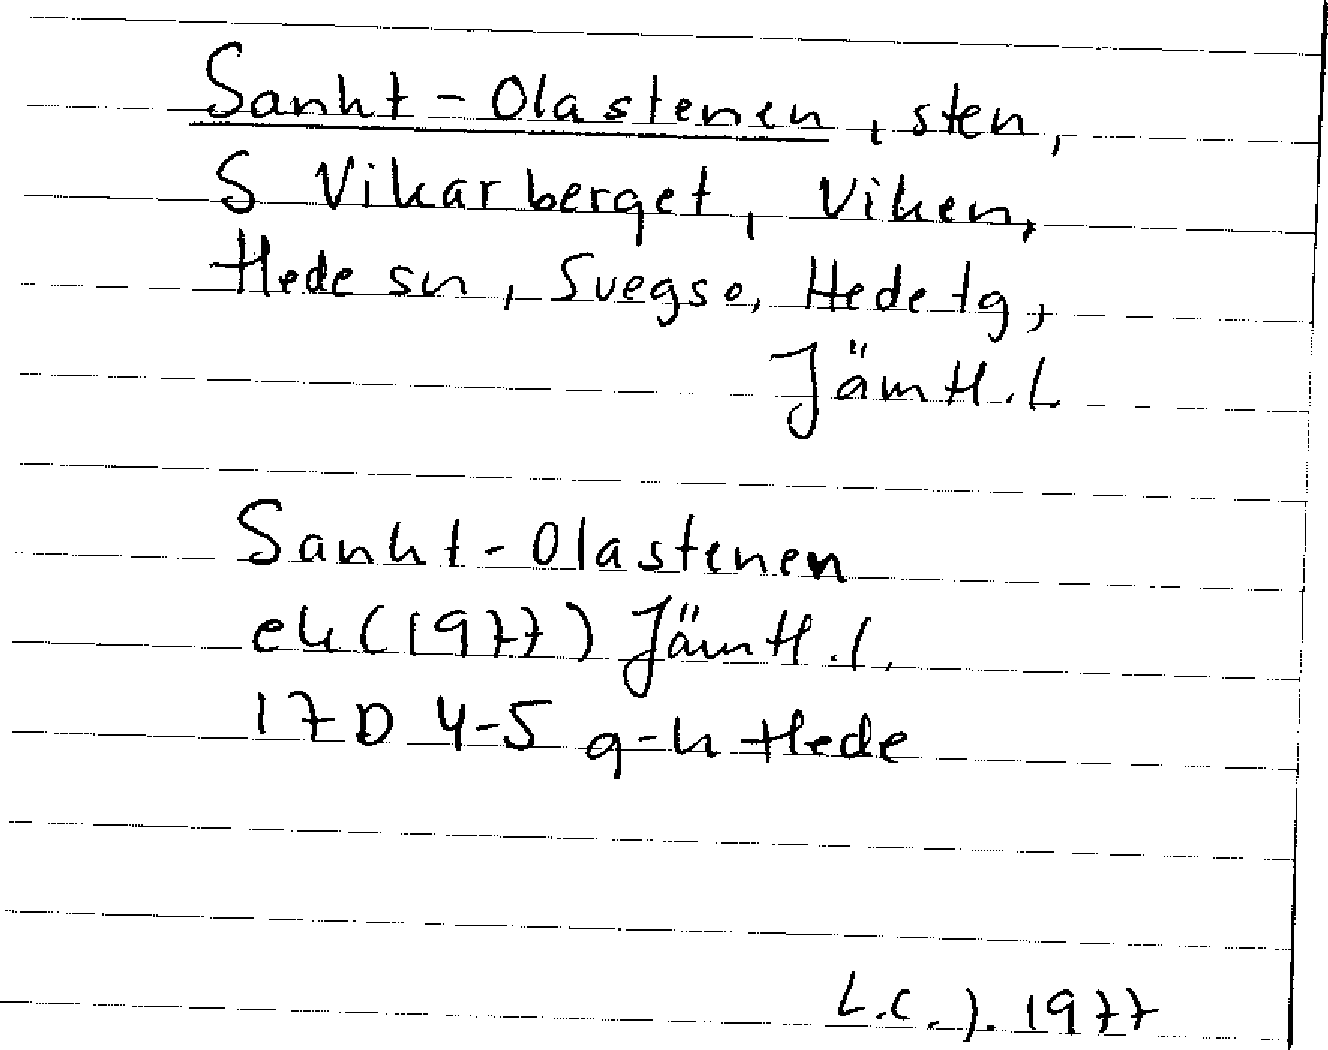 Sankt-Olastenen, sten,
S Vikarberget, Viken,
Hede sn, Svegs o, Hede tg,
Jämtl. L
Sankt-Olastenen
ek (1977) Jämtl. l.
17D 4-5 g-h Hede
L.C.J. 1977